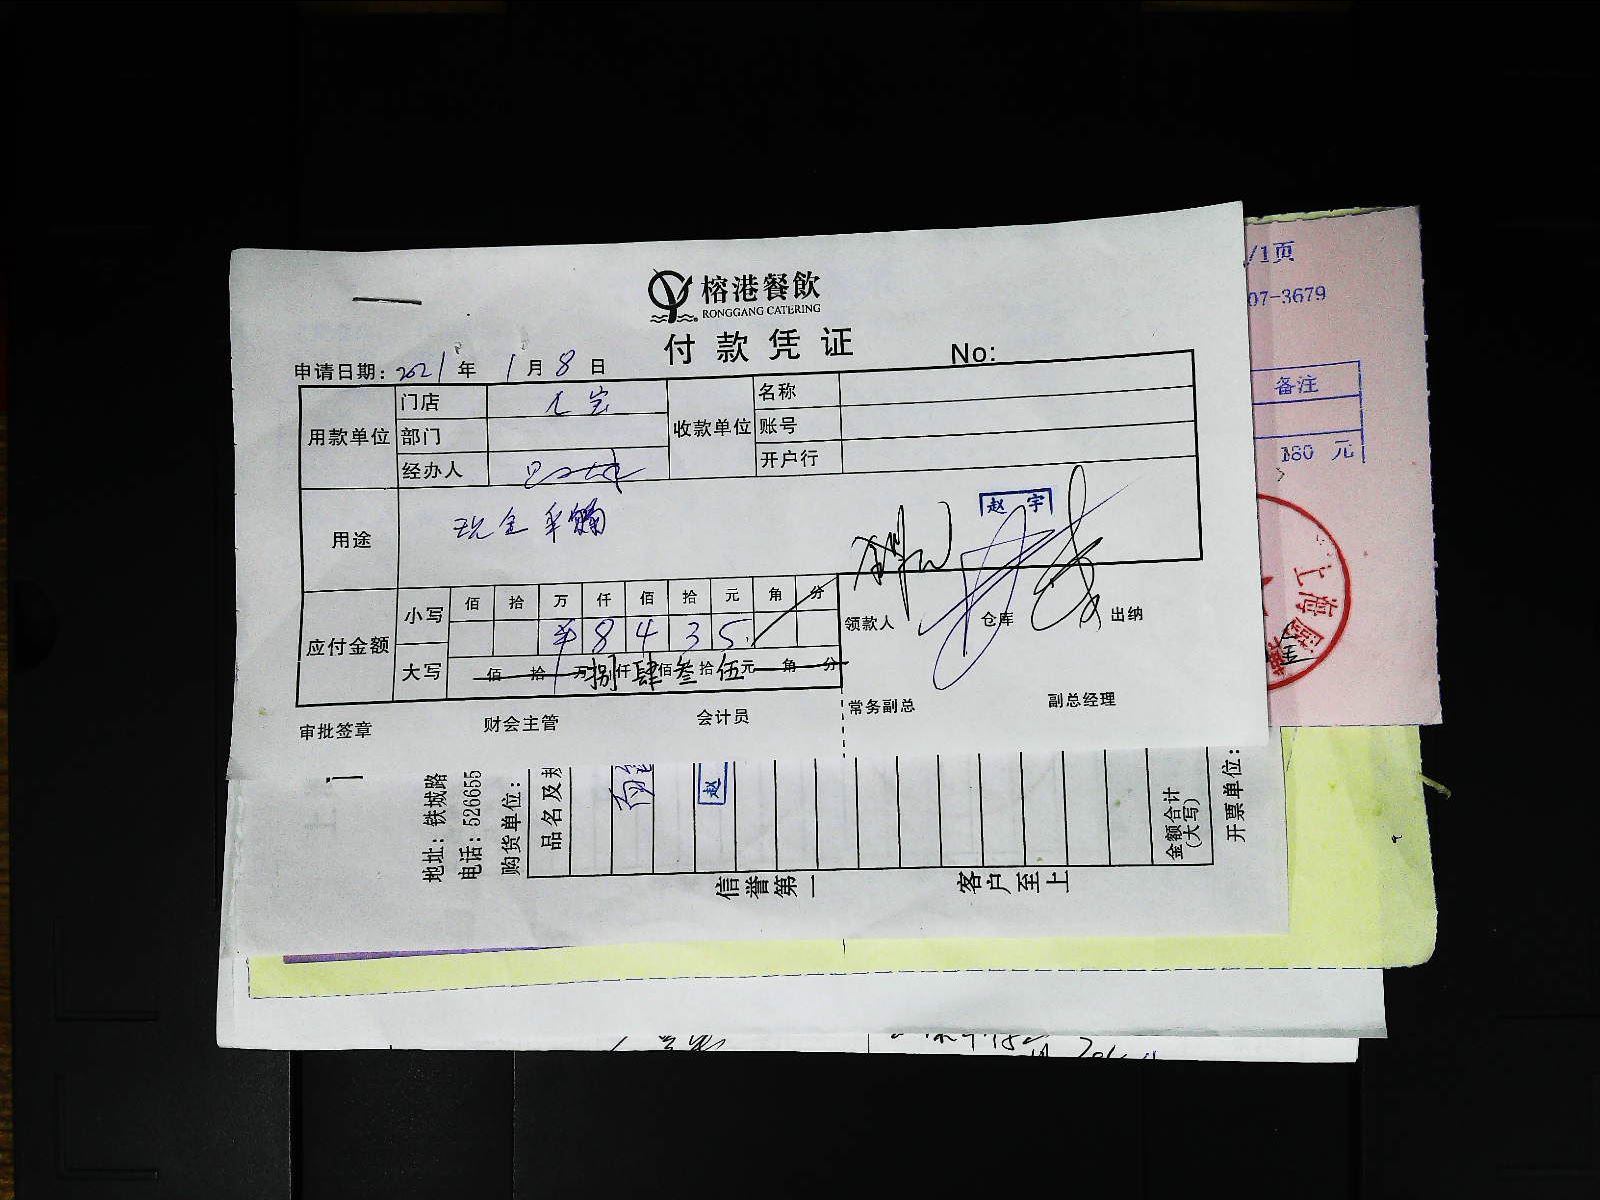 榕港餐飲
RONGGANG CATERING
付款凭证
No:
申请日期: 2021 年 1 月 8 日
用款单位
门店
部门
经办人
收款单位
名称
账号
开户行
用途
现金采购
赵宇
应付金额
小写
佰 拾 万 仟 佰 拾 元 角 分
¥ 8 4 3 5
大写
佰 拾 万 捌 仟 肆 佰 叁 拾 伍 元 角 分
领款人
仓库
出纳
审批签章
财会主管
会计员
常务副总
副总经理
/1页
07-3679
备注
180 元
上海
地址: 铁城路
电话: 526655
购货单位:
品名及规
赵
金额合计
(大写)
开票单位:
信誉第一
客户至上